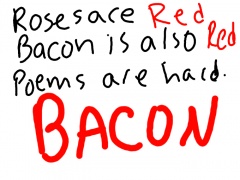 Roses are Red
Bacon is also Red
Poems are hard.
BACON